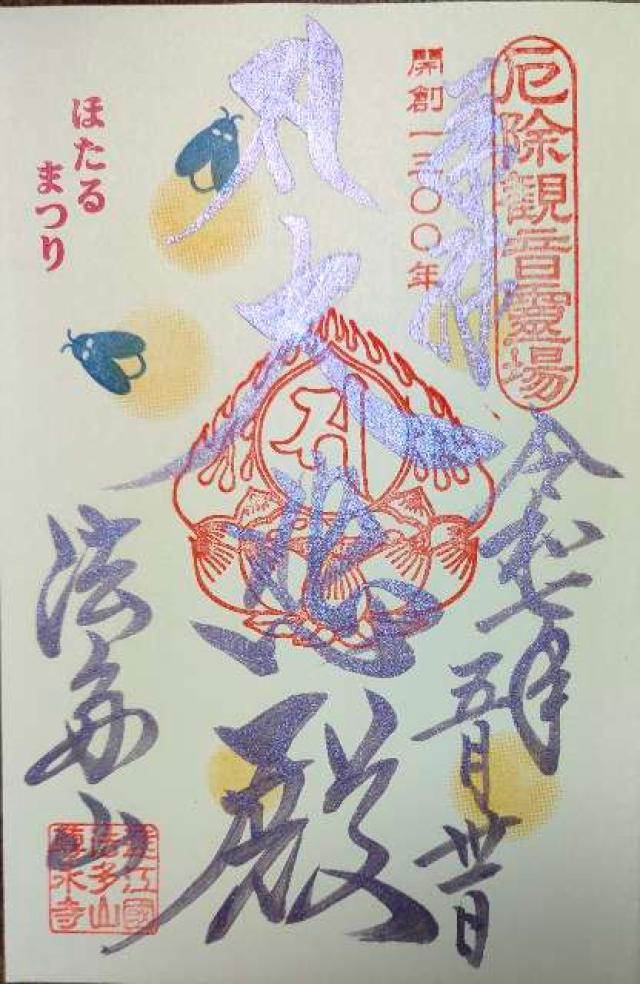 厄除観音霊場
開創一三〇〇年
奉拝
令和七年
五月廿日
大悲殿
法多山
ほたる
まつり
遠江國
法多山
尊永寺